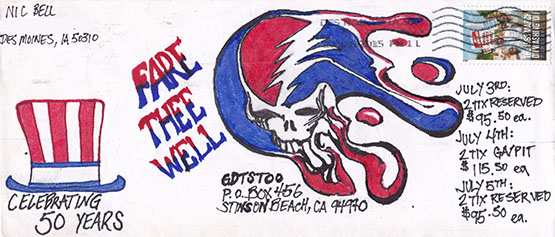 NIC BELL
DES MOINES, IA 50310
FARE
THEE
WELL
CELEBRATING
50 YEARS
GDTSTOO
P.O. BOX 456
STINSON BEACH, CA 94970
2015 PM 1 L
JULY 3RD:
2 TIX RESERVED
$95.50 ea.
JULY 4TH:
2 TIX GA/PIT
$115.50 ea
JULY 5TH:
2 TIX RESERVED
$95.50 ea.